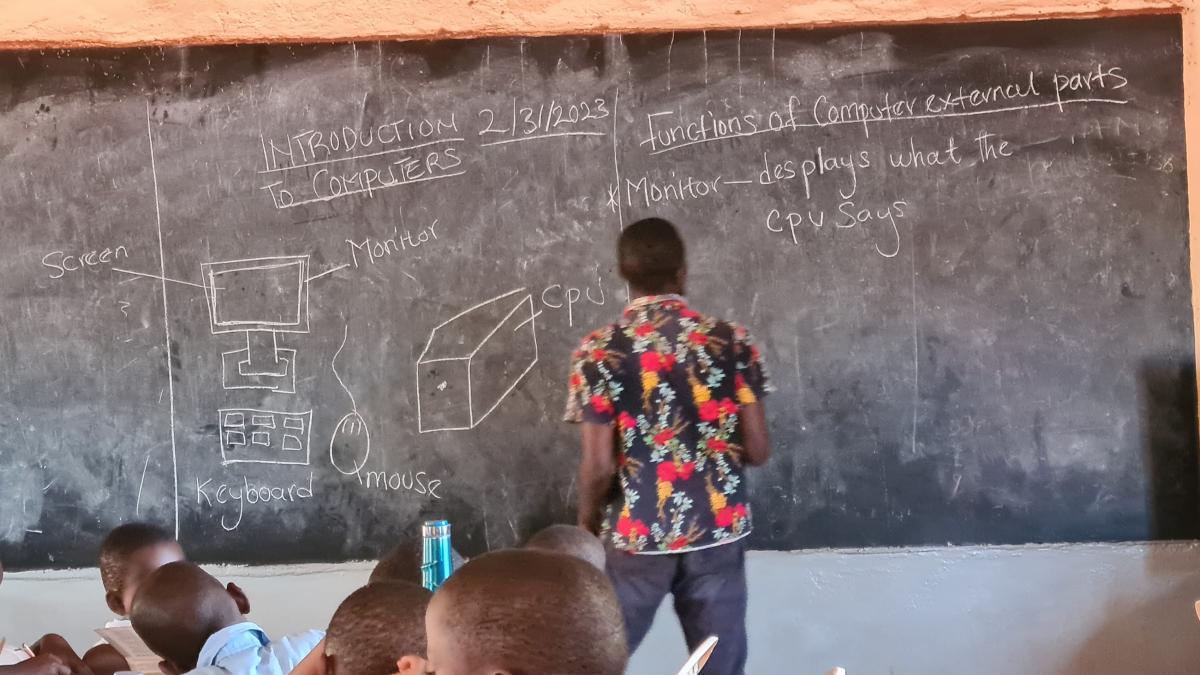 INTRODUCTION 2/31/2023
TO COMPUTERS
Screen
Monitor
CPU
Keyboard
mouse
Functions of Computer external parts
* Monitor — desplays what the
CPU Says